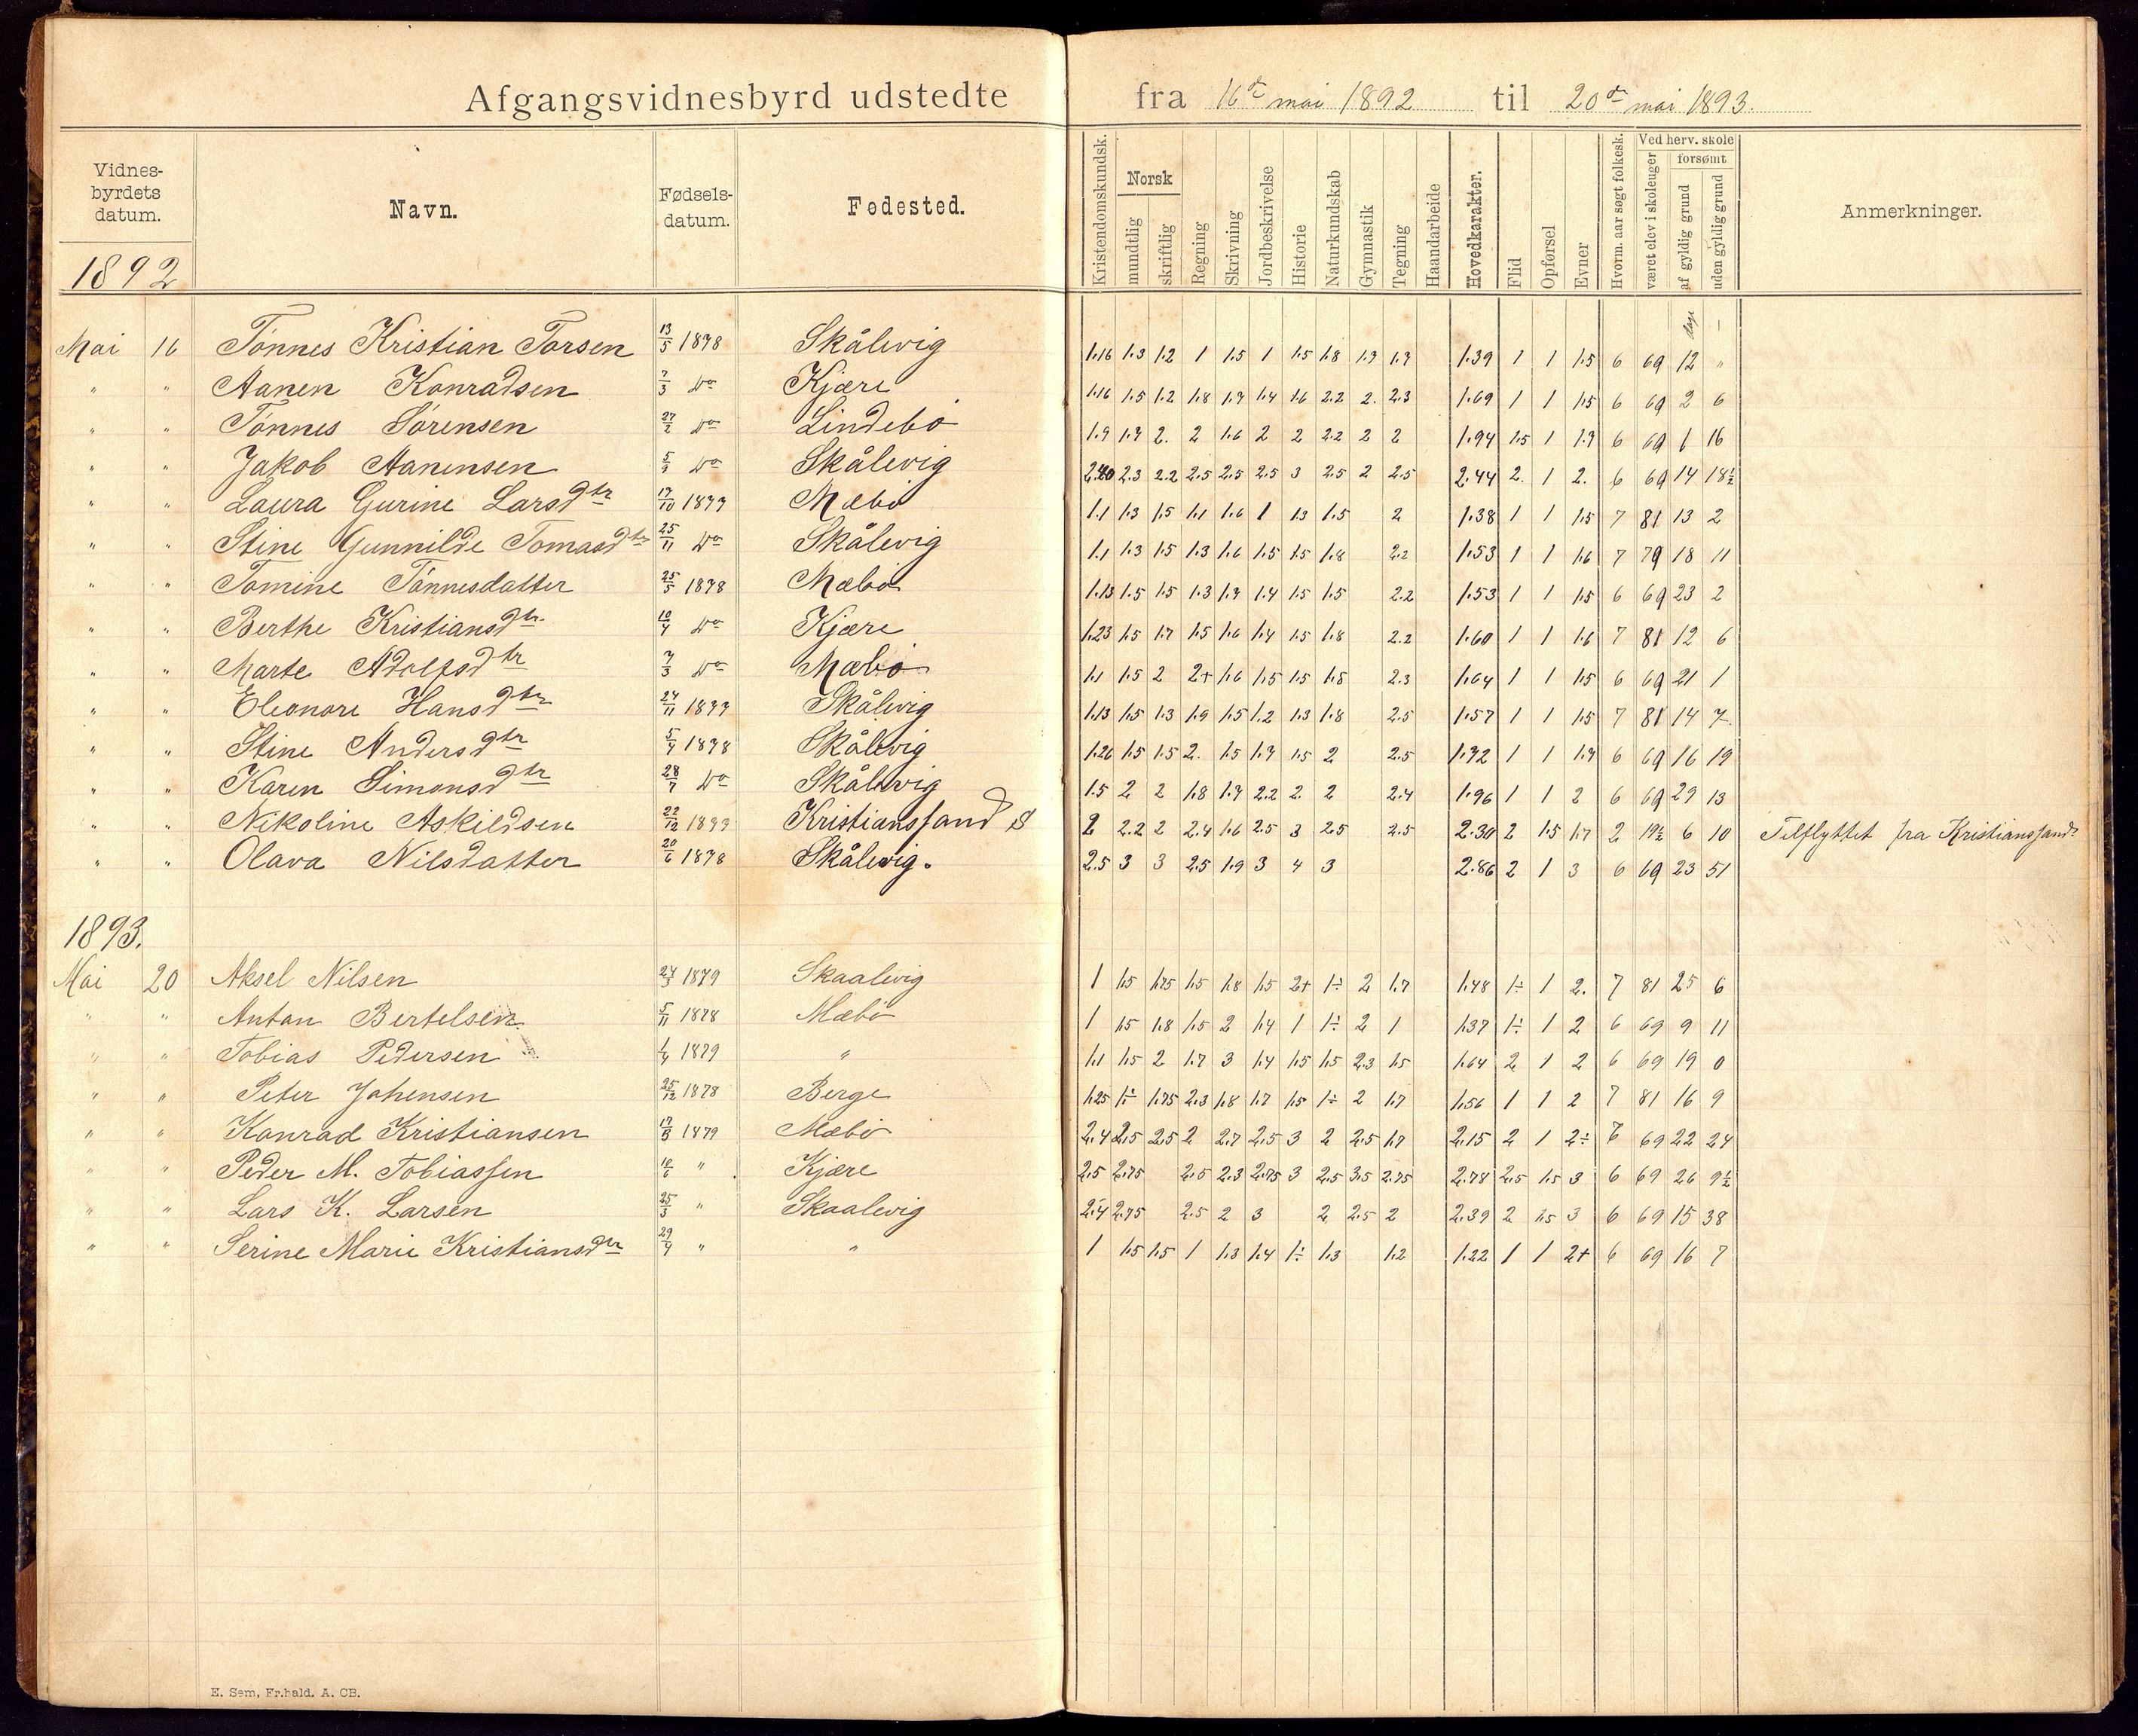 Afgangsvidnesbyrd udstedte fra 16de mai 1892 til 20de mai 1893.
Vidnes-byrdets datum. Navn. Fødsels-datum. Fødested. Kristendomskundsk. Norsk mundtlig skriftlig Regning Skrivning Jordbeskrivelse Historie Naturkundskab Gymnastik Tegning Haandarbeide Hovedkarakter. Flid Opførsel Evner Hvorm. aar søgt folkesk. Ved herv. skole været elev i skoleuger forsømt af gyldig grund uden gyldig grund Anmerkninger.
1892
dage –
Mai 16 Tönnes Kristian Torsen 13/5 1878 Skålevig 1.16 1.3 1.2 1 1.5 1 1.5 1.8 1.7 1.7 1.39 1 1 1.5 6 69 12 "
" " Aanen Konradsen 7/3 Do Kjære 1.16 1.5 1.2 1.8 1.7 1.4 1.6 2.2 2. 2.3 1.69 1 1 1.5 6 69 2 6
" " Tönnes Sörensen 27/2 Do Lindebö 1.9 1.7 2. 2 1.6 2 2 2.2 2 2 1.94 1.5 1 1.7 6 69 1 16
" " Jakob Aanensen 5/7 Do Skålevig 2.40 2.3 2.2 2.5 2.5 2.5 3 2.5 2 2.5 2.44 2. 1 2. 6 69 14 18½
" " Laura Gurine Larsdtr 17/10 1877 Mæbö 1.1 1.3 1.5 1.1 1.6 1 1.3 1.5 2 1.38 1 1 1.5 7 81 13 2
" " Stine Gunnilde Tomasdtr 25/11 Do Skålevig 1.1 1.3 1.5 1.3 1.6 1.5 1.5 1.8 2.2 1.53 1 1 1.6 7 79 18 11
" " Tomine Tönnesdatter 25/5 1878 Mæbö 1.13 1.5 1.5 1.3 1.7 1.4 1.5 1.5 2.2 1.53 1 1 1.5 6 69 23 2
" " Berthe Kristiansdtr 10/4 Do Kjære 1.23 1.5 1.7 1.5 1.6 1.4 1.5 1.8 2.2 1.60 1 1 1.6 7 81 12 6
" " Marte Adolfsdtr 7/3 Do Mæbö 1.1 1.5 2 2+ 1.6 1.5 1.5 1.5 2.3 1.64 1 1 1.5 6 69 21 1
" " Eleonore Hansdtr 24/11 1877 Skålevig 1.13 1.5 1.3 1.9 1.5 1.2 1.3 1.8 2.5 1.57 1 1 1.5 7 81 14 7
" " Stine Andersdtr 5/4 1878 Skålevig 1.26 1.5 1.5 2. 1.5 1.7 1.5 2 2.5 1.72 1 1 1.7 6 69 16 19
" " Karen Simonsdtr 28/7 Do Skålevig 1.5 2 2 1.8 1.7 2.2 2. 2 2.4 1.96 1 1 2 6 69 29 13
" " Nikoline Askildsen 22/12 1877 Kristianssand S 2 2.2 2 2.4 1.6 2.5 3 2.5 2.5 2.30 2 1.5 1.7 2 19½ 6 10 Tilflyttet fra Kristianssand
" " Olava Nilsdatter 20/6 1878 Skålevig. 2.5 3 3 2.5 1.9 3 4 3 2.86 2 1 3 6 69 23 51
1893.
Mai 20 Aksel Nilsen 24/3 1879 Skaalevig 1 1.5 1.75 1.5 1.8 1.5 2+ 1÷ 2 1.7 1.48 1÷ 1 2. 7 81 25 6
" " Anton Bertelsen 5/11 1878 Mæbö 1 1.5 1.8 1.5 2 1.4 1 1÷ 2 1 1.37 1÷ 1 2 6 69 9 11
" " Tobias Pedersen 1/4 1879 " 1.1 1.5 2 1.7 3 1.4 1.5 1.5 2.3 1.5 1.64 2 1 2 6 69 19 0
" " Peter Johensen 25/12 1878 Berge 1.25 1÷ 1.75 2.3 1.8 1.7 1.5 1÷ 2 1.7 1.56 1 1 2 7 81 16 9
" " Konrad Kristiansen 17/3 1879 Mæbö 2.4 2.5 2.5 2 2.7 2.5 3 2 2.5 1.7 2.15 2 1 2÷ 6 69 22 24
" " Peder M. Tobiassen 10/6 " Kjære 2.5 2.75 2.5 2.3 2.75 3 2.5 3.5 2.75 2.78 2.5 1.5 3 6 69 26 9½
" " Lars K. Larsen 25/3 " Skaalevig 2.4 2.75 2.5 2 3 2 2.5 2 2.39 2 1.5 3 6 69 15 38
" " Serine Marie Kristiansdtr 29/4 " " 1 1.5 1.5 1 1.3 1.4 1÷ 1.3 1.2 1.22 1 1 2+ 6 69 16 7
E. Sem, Fr.hald. A. CB.